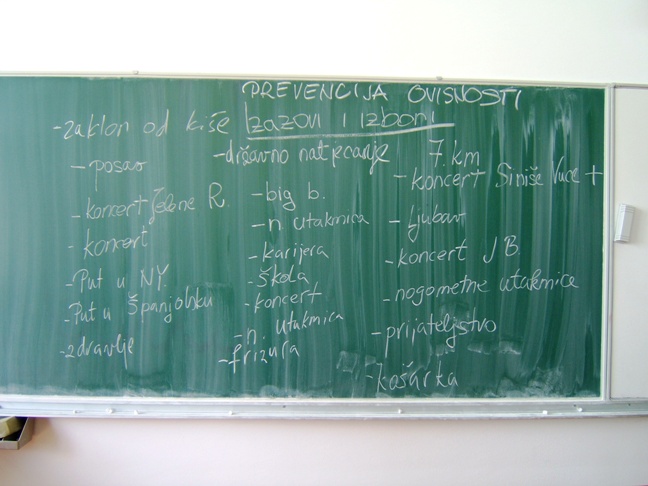 PREVENCIJA OVISNOSTI
Izazovi i izbori
- zaklon od kiše
- posao
- koncert Jelene R.
- koncert
- Put u NY.
- Put u Španjolsku
- zdravlje
- državno natjecanje
- big b.
- n. utakmica
- karijera
- škola
- koncert
- n. utakmica
- frizura
7. km
- koncert Siniše Vuce +
- ljubav
- koncert J B.
- nogometne utakmice
- prijateljstvo
- košarka